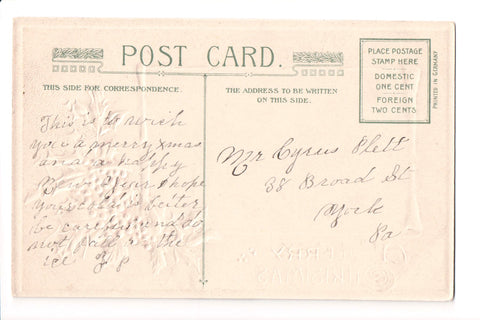 POST CARD.
THIS SIDE FOR CORRESPONDENCE.
THE ADDRESS TO BE WRITTEN
ON THIS SIDE.
PLACE POSTAGE
STAMP HERE
DOMESTIC
ONE CENT
FOREIGN
TWO CENTS
PRINTED IN GERMANY
This is to wish
you a merry xmas
and a happy
New Year I hope
your cold is better
be careful and do
not fall on the
ice
Mr Cyrus Plett
38 Broad St
York
Pa